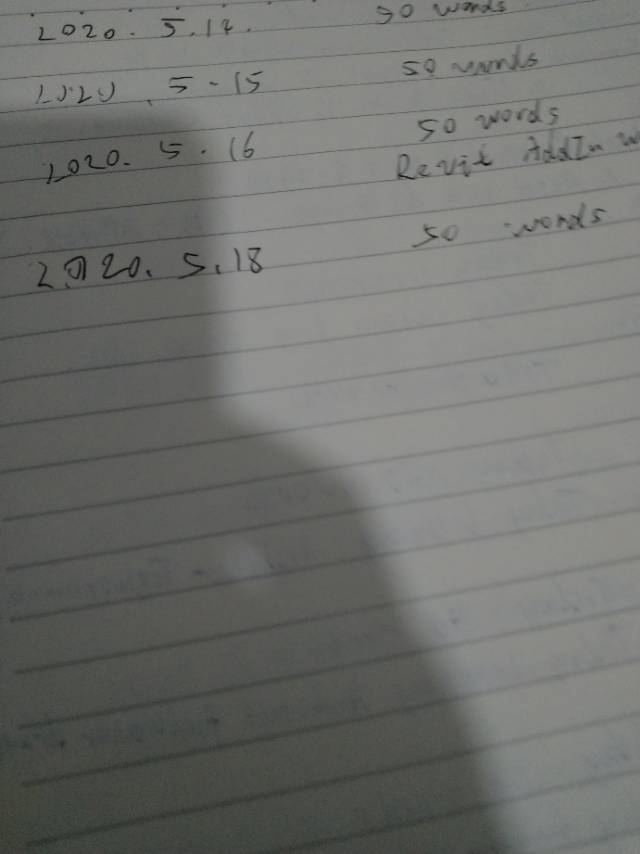 2020. 5.14. 50 words
2020. 5-15 50 words
2020. 5.16 50 words
Revit AddIn
2020. 5.18 50 words